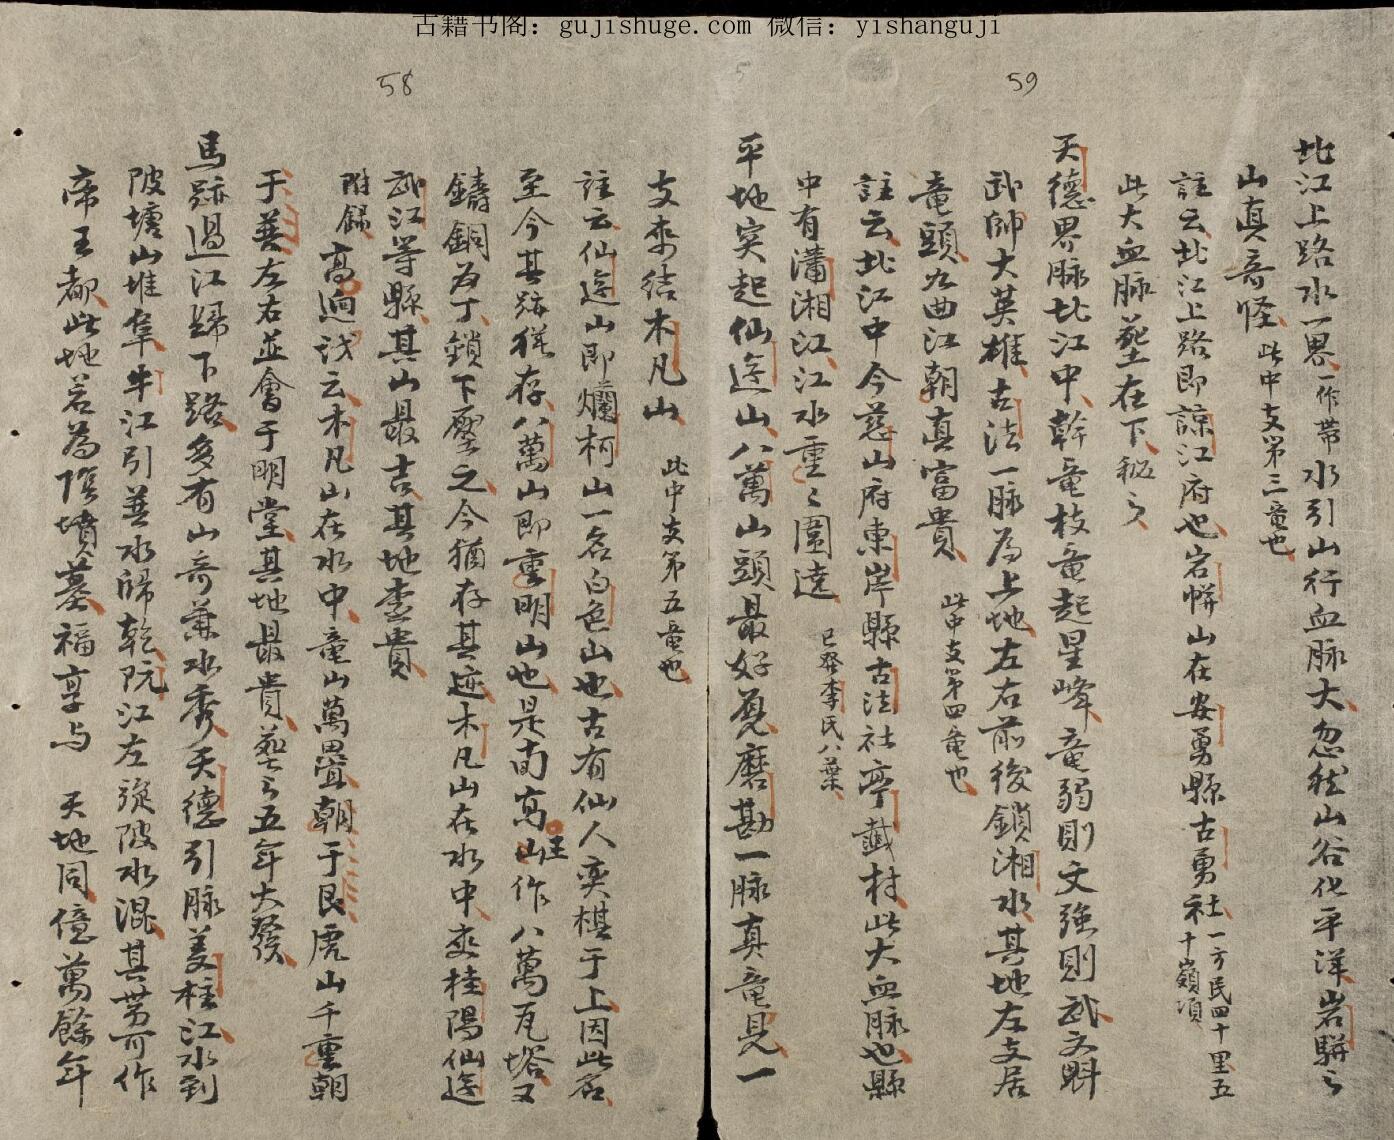 古籍书阁：gujishuge.com 微信：yishanguji
59
北江上路水一畧一作带水引山行血脉大忽然山谷化平洋岩駢之
山真奇怪此中支第三竜也
註云北江上路即諒江府也岩帡山在安勇縣古勇社一方民四十里五十嶺項
此大血脉塟在下秘之
天德界脉北江中幹竜枝竜起星峰竜弱則文強則武文魁
武帥大英雄古法一脉為上地左右前後鎖湘水其地左支居
竜頭九曲江朝真富貴此中支第四竜也
註云北江中今慈山府東岸縣古法社亭村此大血脉也縣
中有瀟湘江江水重〻圍遶已發李氏八葉
平地突起仙遊山八萬山頭最好磨勘一脉真竜見一
58
支來結木凡山此中支第五竜也
註云仙遊山即爛柯山一名白色山也古有仙人奕棋于上因此名
至今其跡猶存八萬山即重明山也是高王山作八萬瓦塔又
鑄銅為丁鎖下壓之今猶存其迹木凡山在水中夾桂陽仙遊
武江等縣其山最吉其地李貴
附錄高迥云木凡山在水中竜山萬疊朝于艮虎山千重朝
于左右並會于明堂其地最貴塟之五年大發
馬跡過江歸下路多有山奇兼水秀天德引脉姜柱江水到
陂塘山堆阜牛江引水歸乾阮江左從陂水混其可作
帝王都此地若為陰墳墓福享与 天地同億萬餘年